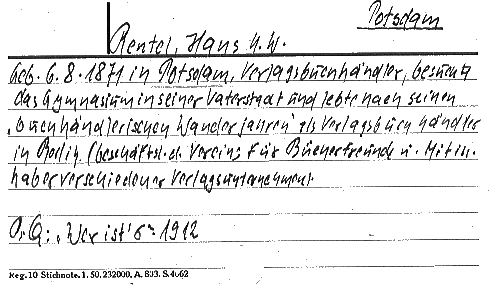 Potsdam
Rentel, Hans H.W.
geb. 6.8.1871 in Potsdam, Verlagsbuchhändler, besuchte
das Gymnasium in seiner Vaterstadt und lebte nach seinen
„buchhändlerischen Wanderjahren" als Verlagsbuchhändler
in Berlin. (beschäftsl. d. Vereins für Bücherfreunde u. Mitin-
haber verschiedener Verlagsunternehmen
O.Q: „Wer ist's" 1912
Reg. 10 Stichnote. 1. 50. 232000. A. 803. S. 4662